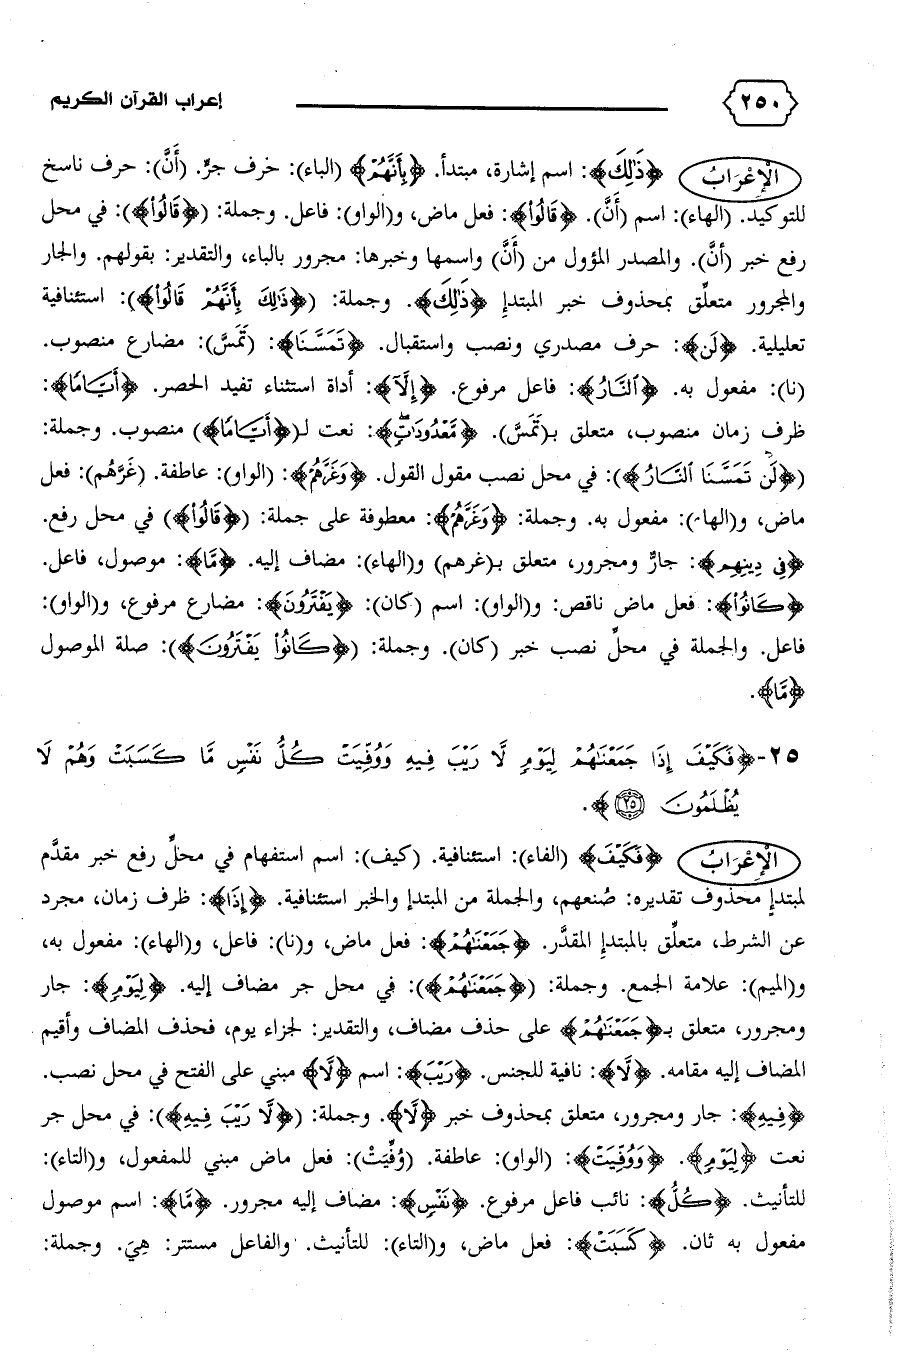 ٢٥٠ إعراب القرآن الكريم
الْإِعْرَابُ ﴿ذَٰلِكَ﴾: اسم إشارة، مبتدأ. ﴿بِأَنَّهُمْ﴾ (الباء): حرف جرٍّ. (أَنَّ): حرف ناسخ
للتوكيد. (الهاء): اسم (أَنَّ). ﴿قَالُواْ﴾: فعل ماض، و(الواو): فاعل. وجملة: (﴿قَالُواْ﴾): في محل
رفع خبر (أنَّ). والمصدر المؤول من (أَنَّ) واسمها وخبرها: مجرور بالباء، والتقدير: بقولهم. والجار
والمجرور متعلِّق بمحذوف خبر المبتدإ ﴿ذَٰلِكَ﴾. وجملة: (﴿ذَٰلِكَ بِأَنَّهُمْ قَالُواْ﴾): استئنافية
تعليلية. ﴿لَن﴾: حرف مصدري ونصب واستقبال. ﴿تَمَسَّنَا﴾: (تَمَسَّ): مضارع منصوب.
(نا): مفعول به. ﴿ٱلنَّارُ﴾: فاعل مرفوع. ﴿إِلَّآ﴾: أداة استثناء تفيد الحصر. ﴿أَيَّامًا﴾:
ظرف زمان منصوب، متعلق بـ(تَمَسَّ). ﴿مَّعْدُودَٰتٍۖ﴾: نعت لـ(﴿أَيَّامًا﴾) منصوب. وجملة:
(﴿لَن تَمَسَّنَا ٱلنَّارُ﴾): في محل نصب مقول القول. ﴿وَغَرَّهُمْ﴾: (الواو): عاطفة. (غَرَّهُم): فعل
ماض، و(الهاء): مفعول به. وجملة: ﴿وَغَرَّهُمْ﴾: معطوفة على جملة: (﴿قَالُواْ﴾) في محل رفع.
﴿فِي دِينِهِم﴾: جارٌّ ومجرور، متعلق بـ(غرهم) و(الهاء): مضاف إليه. ﴿مَّا﴾: موصول، فاعل.
﴿كَانُواْ﴾: فعل ماض ناقص: و(الواو): اسم (كان): ﴿يَفْتَرُونَ﴾: مضارع مرفوع، و(الواو):
فاعل. والجملة في محلِّ نصب خبر (كان). وجملة: (﴿كَانُواْ يَفْتَرُونَ﴾): صلة الموصول
﴿مَّا﴾.
٢٥-﴿فَكَيْفَ إِذَا جَمَعْنَٰهُمْ لِيَوْمٍ لَّا رَيْبَ فِيهِ وَوُفِّيَتْ كُلُّ نَفْسٍ مَّا كَسَبَتْ وَهُمْ لَا
يُظْلَمُونَ ٢٥﴾.
الْإِعْرَابُ ﴿فَكَيْفَ﴾ (الفاء): استئنافية. (كيف): اسم استفهام في محلِّ رفع خبر مقدَّم
لمبتدإٍ محذوف تقديره: صُنعهم، والجملة من المبتدإ والخبر استئنافية. ﴿إِذَا﴾: ظرف زمان، مجرد
عن الشرط، متعلِّق بالمبتدإ المقدَّر. ﴿جَمَعْنَٰهُمْ﴾: فعل ماض، و(نا): فاعل، و(الهاء): مفعول به،
و(الميم): علامة الجمع. وجملة: (﴿جَمَعْنَٰهُمْ﴾): في محل جر مضاف إليه. ﴿لِيَوْمٍ﴾: جار
ومجرور، متعلق بـ﴿جَمَعْنَٰهُمْ﴾ على حذف مضاف، والتقدير: لجزاء يوم، فحذف المضاف وأقيم
المضاف إليه مقامه. ﴿لَّا﴾: نافية للجنس. ﴿رَيْبَ﴾: اسم ﴿لَّا﴾ مبني على الفتح في محل نصب.
﴿فِيهِ﴾: جار ومجرور، متعلق بمحذوف خبر ﴿لَّا﴾. وجملة: (﴿لَّا رَيْبَ فِيهِ﴾): في محل جر
نعت ﴿لِيَوْمٍ﴾. ﴿وَوُفِّيَتْ﴾: (الواو): عاطفة. (وُفِّيَتْ): فعل ماض مبني للمفعول، و(التاء):
للتأنيث. ﴿كُلُّ﴾: نائب فاعل مرفوع. ﴿نَفْسٍ﴾: مضاف إليه مجرور. ﴿مَّا﴾: اسم موصول
مفعول به ثان. ﴿كَسَبَتْ﴾: فعل ماض، و(التاء): للتأنيث. والفاعل مستتر: هِيَ. وجملة: